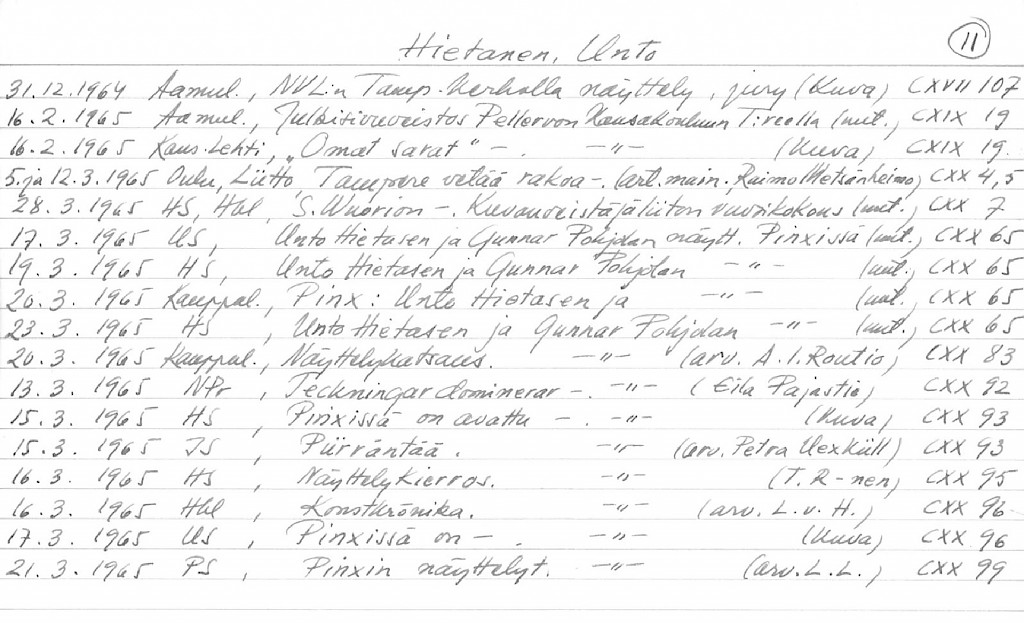 11
Hietanen, Unto
31.12.1964 Aamul., NVL:n Tamp. kerholla näyttely, jury (Kuva) CXVII 107
16.2.1965 Aamul., Julkisivuveistos Pellervon Kansakouluun Tireella (mt.), CXIX 19
16.2.1965 Kans.Lehti, "Omat sarat" -. -"- (Kuva) CXIX 19.
5.ja 12.3.1965 Oulu, Liitto, Tampere vetää rakoa -. (art. main. Raimo Metsänheimo) CXX 4,5
28.3.1965 HS, Hbl, S. Wuorion -. Kuvanveistäjäliiton vuosikokous (mt.), CXX 7
17.3.1965 US, Unto Hietasen ja Gunnar Pohjolan näytt. Pinxissä (mt.), CXX 65
19.3.1965 HS, Unto Hietasen ja Gunnar Pohjolan -"- (mt., CXX 65
20.3.1965 Kauppal., Pinx: Unto Hietasen ja -"- (mt., CXX 65
23.3.1965 HS, Unto Hietasen ja Gunnar Pohjolan -"- (mt.) CXX 65
20.3.1965 Kauppal., Näyttelykatsaus. -"- (arv. A.I. Routio) CXX 83
13.3.1965 NPr, Teckningar dominerar -. -"- (Eila Pajastie) CXX 92
15.3.1965 HS, Pinxissä on avattu -. -"- (Kuva) CXX 93
15.3.1965 IS, Piirräntää. -"- (arv. Petra Uexküll) CXX 93
16.3.1965 HS, Näyttelykierros. -"- (T. R-nen) CXX 95
16.3.1965 Hbl, Konstkrönika. -"- (arv. L.v.H.) CXX 96
17.3.1965 US, Pinxissä on -. -"- (Kuva) CXX 96
21.3.1965 PS, Pinxin näyttelyt. -"- (arv. L.L.) CXX 99